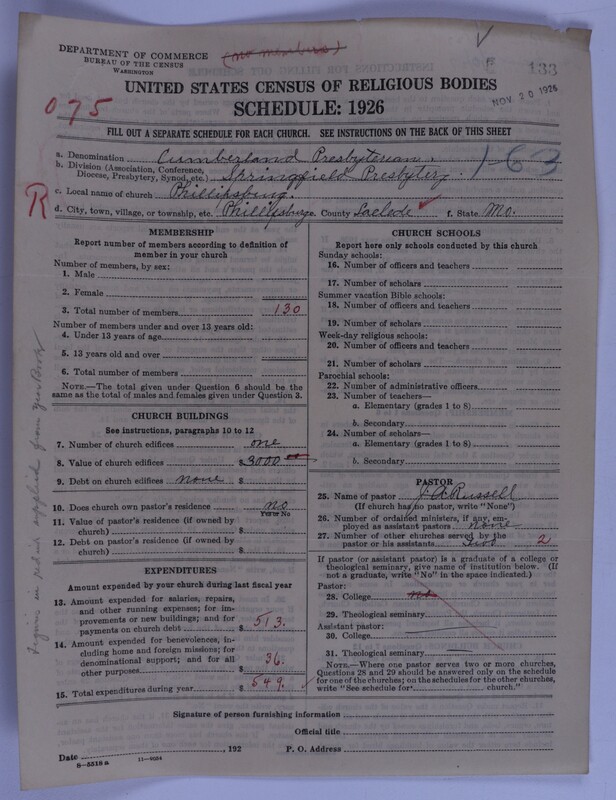 DEPARTMENT OF COMMERCE
BUREAU OF THE CENSUS
WASHINGTON
(no members)
133
NOV 20 1926
UNITED STATES CENSUS OF RELIGIOUS BODIES
SCHEDULE: 1926
075
FILL OUT A SEPARATE SCHEDULE FOR EACH CHURCH. SEE INSTRUCTIONS ON THE BACK OF THIS SHEET
a. Denomination Cumberland Presbyterian.
163
b. Division (Association, Conference, Diocese, Presbytery, Synod, etc.) Springfield Presbytery.
c. Local name of church Phillipsburg.
R
d. City, town, village, or township, etc. Phillipsburg e. County Laclede f. State Mo.
MEMBERSHIP
Report number of members according to definition of
member in your church
Number of members, by sex:
1. Male
2. Female
3. Total number of members 130
Number of members under and over 13 years old:
4. Under 13 years of age
5. 13 years old and over
6. Total number of members
NOTE.—The total given under Question 6 should be
the same as the total of males and females given under Question 3.
CHURCH BUILDINGS
See instructions, paragraphs 10 to 12
7. Number of church edifices one
8. Value of church edifices $3000
9. Debt on church edifices none $
10. Does church own pastor's residence? no
Yes or No
11. Value of pastor's residence (if owned by
church) $
12. Debt on pastor's residence (if owned by
church) $
EXPENDITURES
Amount expended by your church during last fiscal year
13. Amount expended for salaries, repairs,
and other running expenses; for im-
provements or new buildings; and for
payments on church debt $ 513.
14. Amount expended for benevolences, in-
cluding home and foreign missions; for
denominational support; and for all
other purposes $ 36.
15. Total expenditures during year $ 549.
Figures in red ink supplied from Year Book
CHURCH SCHOOLS
Report here only schools conducted by this church
Sunday schools:
16. Number of officers and teachers
17. Number of scholars
Summer vacation Bible schools:
18. Number of officers and teachers
19. Number of scholars
Week-day religious schools:
20. Number of officers and teachers
21. Number of scholars
Parochial schools:
22. Number of administrative officers
23. Number of teachers—
a. Elementary (grades 1 to 8)
b. Secondary
24. Number of scholars—
a. Elementary (grades 1 to 8)
b. Secondary
PASTOR
25. Name of pastor J. A. Russell
(If church has no pastor, write "None")
26. Number of ordained ministers, if any, em-
ployed as assistant pastors None
27. Number of other churches served by the
pastor or his assistants two 2
If pastor (or assistant pastor) is a graduate of a college or
theological seminary, give name of institution below. (If
not a graduate, write "No" in the space indicated.)
Pastor:
28. College no
29. Theological seminary
Assistant pastor:
30. College
31. Theological seminary
NOTE.—Where one pastor serves two or more churches,
Questions 28 and 29 should be answered only on the schedule
for one of the churches; on the schedules for the other churches,
write "See schedule for church."
Signature of person furnishing information
Official title
Date , 192 P. O. Address
8—5518 a 11—9024